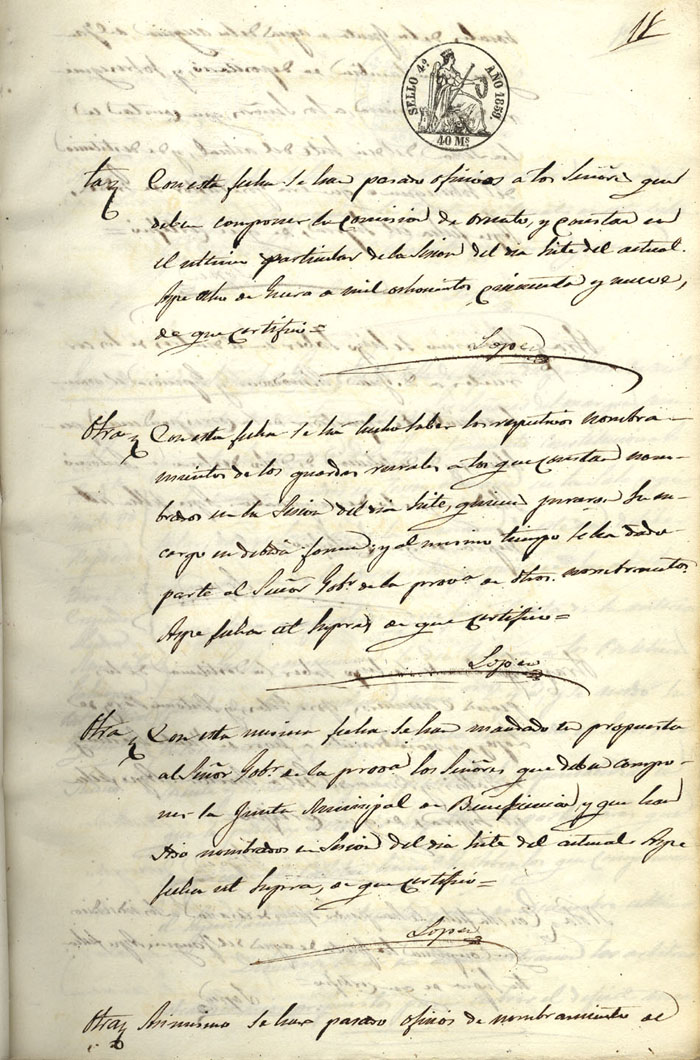 SELLO 4º AÑO 1859.
40 Ms
Con esta fecha se han pasado oficios a los Señores que
deben componer la comision de Ornato, y constan en
el ultimo particular de la Sesion del dia siete del actual.
Aspe ocho de Enero de mil ochocientos cincuenta y nueve,
de que certifico=
Lopez
Otra Con esta fecha se há hecho saber los respectivos nombra-
mientos de los guardas rurales a los que constan nom-
brados en la Sesion del dia siete, quienes juraron su en-
cargo en debida forma, y al mismo tiempo se ha dado
parte al Señor Gobr. de la prova. de dhos. nombramtos.
Aspe fecha ut supra, de que certifico=
Lopez
Otra Con esta misma fecha se ha mandado en propuesta
al Señor Gobr. de la prova. los Señores que deben compo-
ner la Junta Municipal de Beneficencia, y que han
sido nombrados en Sesion del dia siete del actual. Aspe
fecha ut supra, de que certifico=
Lopez
Otra Asimismo se han pasado oficios de nombramiento de